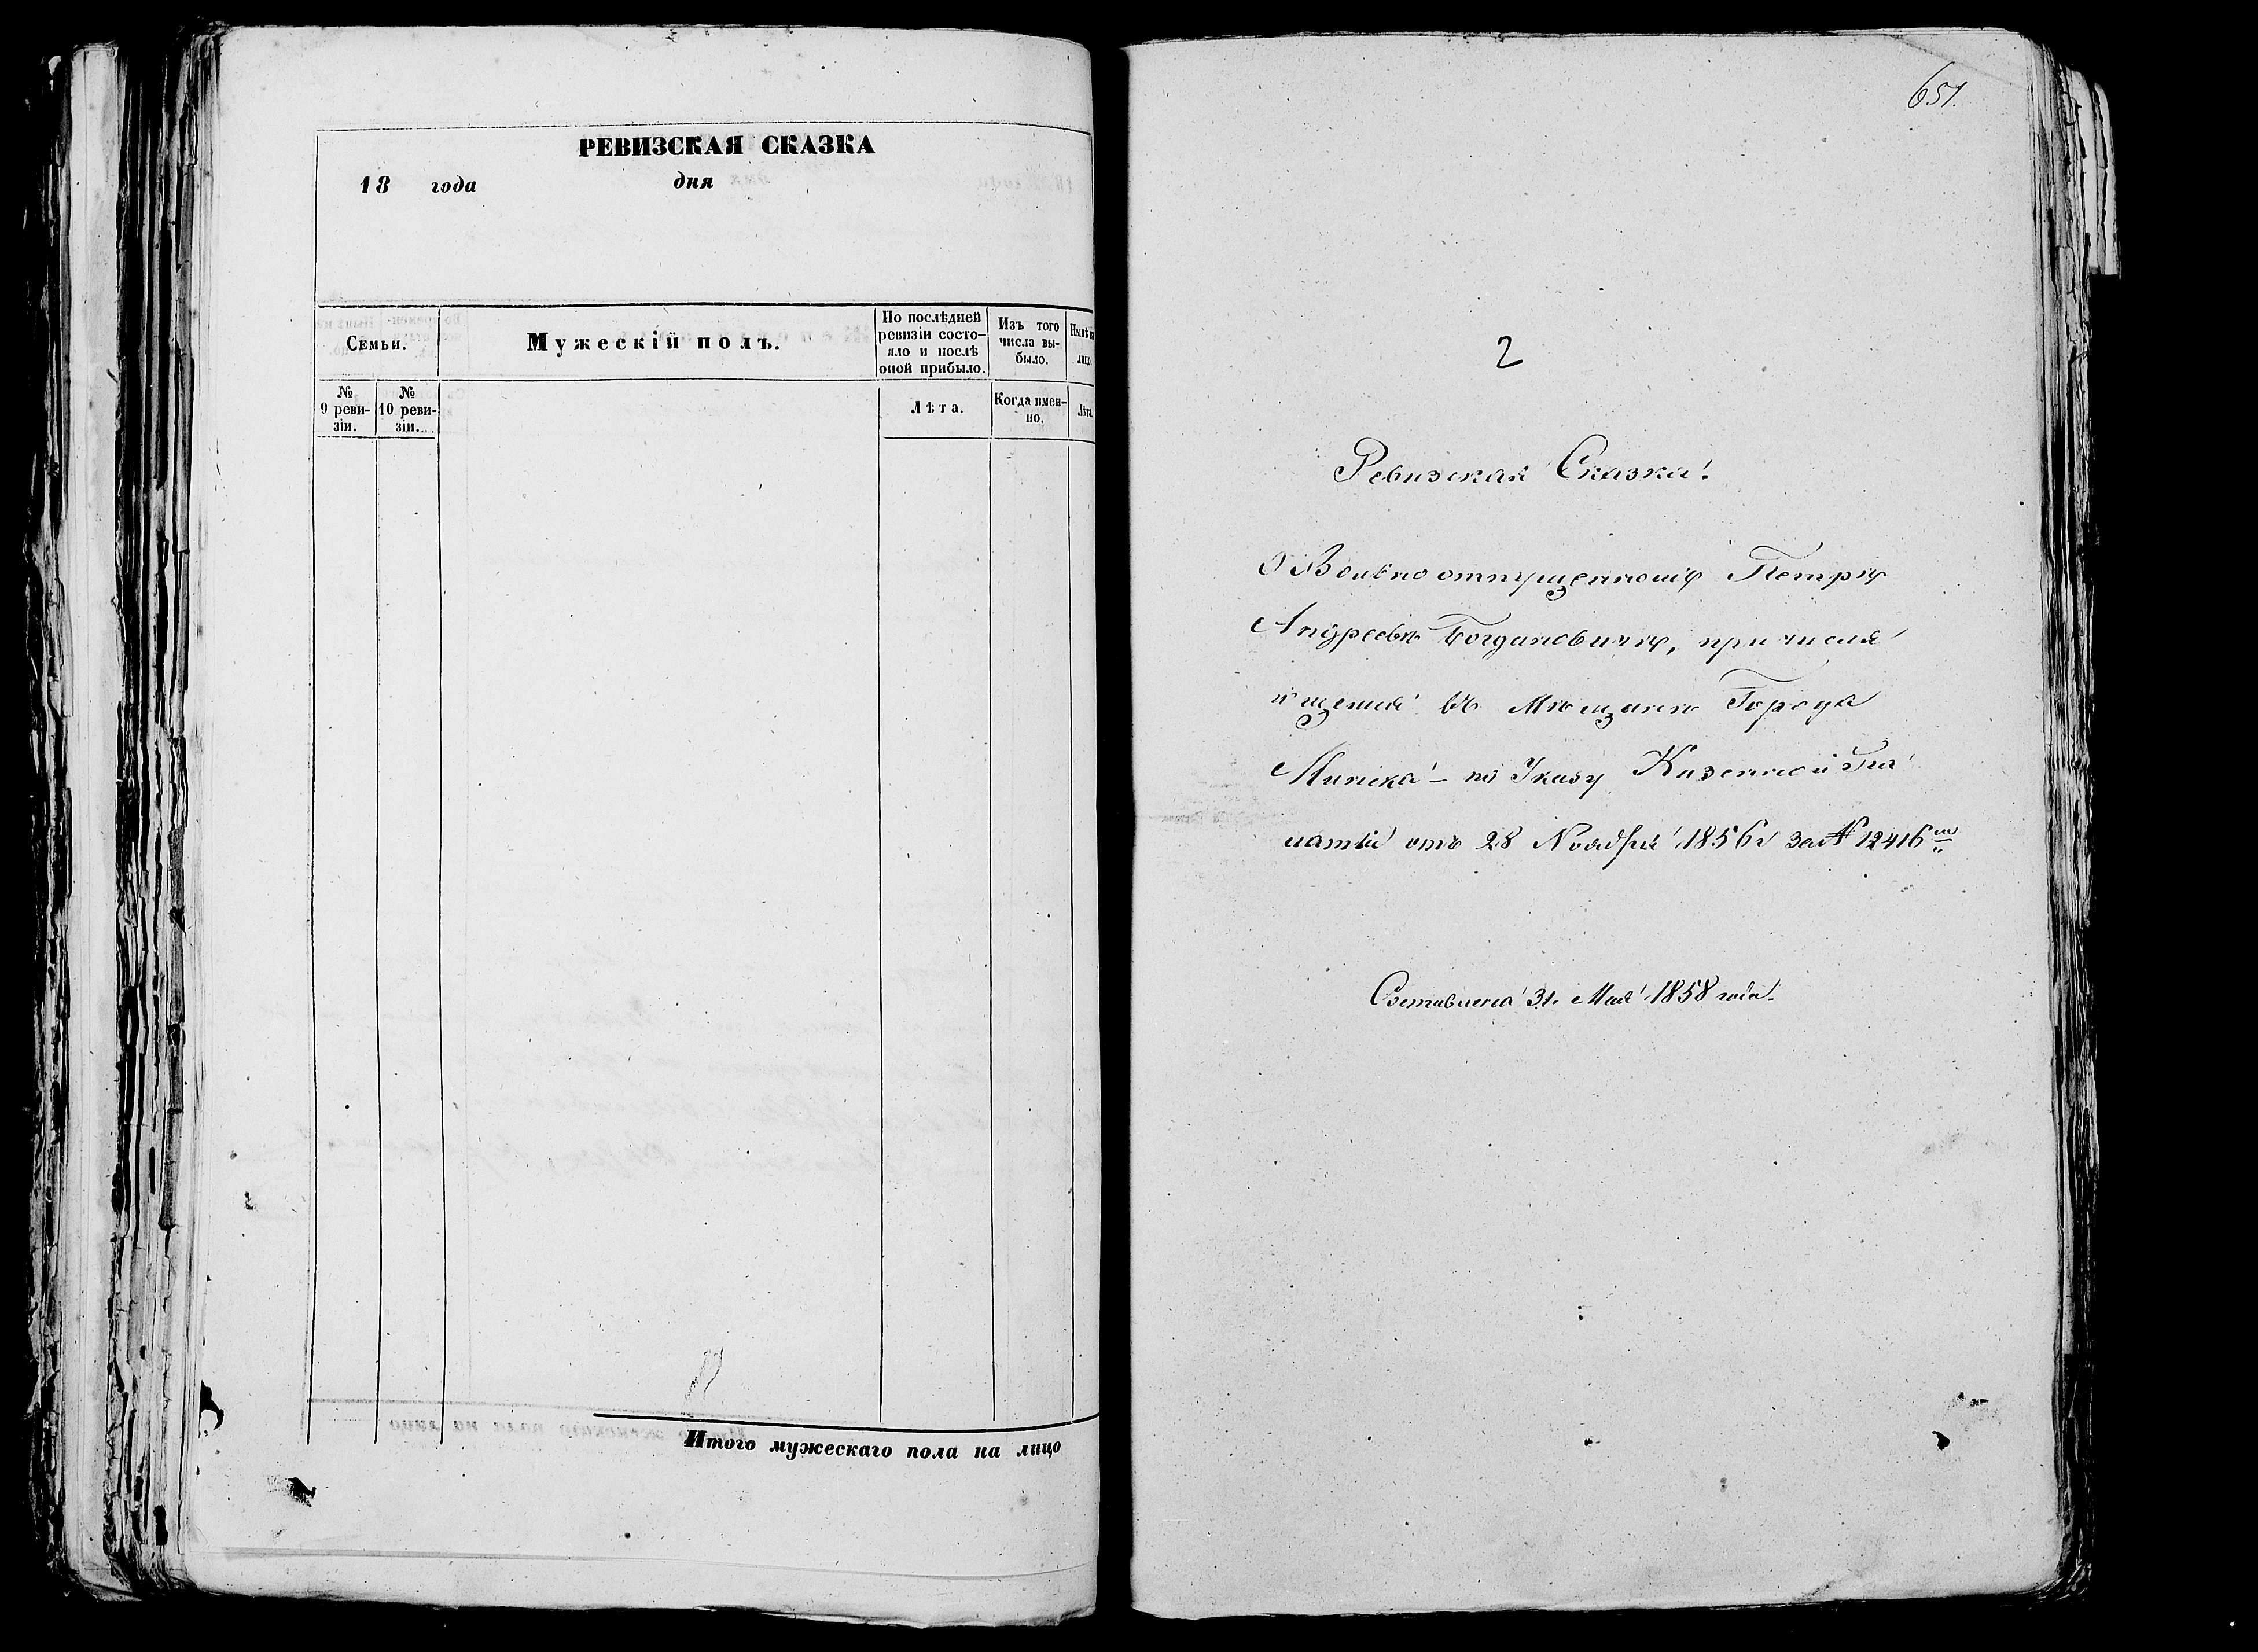 РЕВИЗСКАЯ СКАЗКА
18 года дня
Семьи.
Мужескій полъ.
По послѣдней
ревизіи состо-
яло и послѣ
оной прибыло.
Изъ того
числа вы-
было.
Нынѣ на
лицо.
№
9 реви-
зіи.
№
10 реви-
зіи.
Лѣта.
Когда имен-
но.
Лѣта
Итого мужескаго пола на лицо
651.
2
Ревизская Сказка.
О Вольноотпущенному Петру
Андреевѣ Богдановичу, причисля
ющемся въ Мѣщане Города
Минска – по Указу Казенной Па
латы отъ 28 Ноября 1856 г за № 12416
Составлена 31. Мая 1858 года.